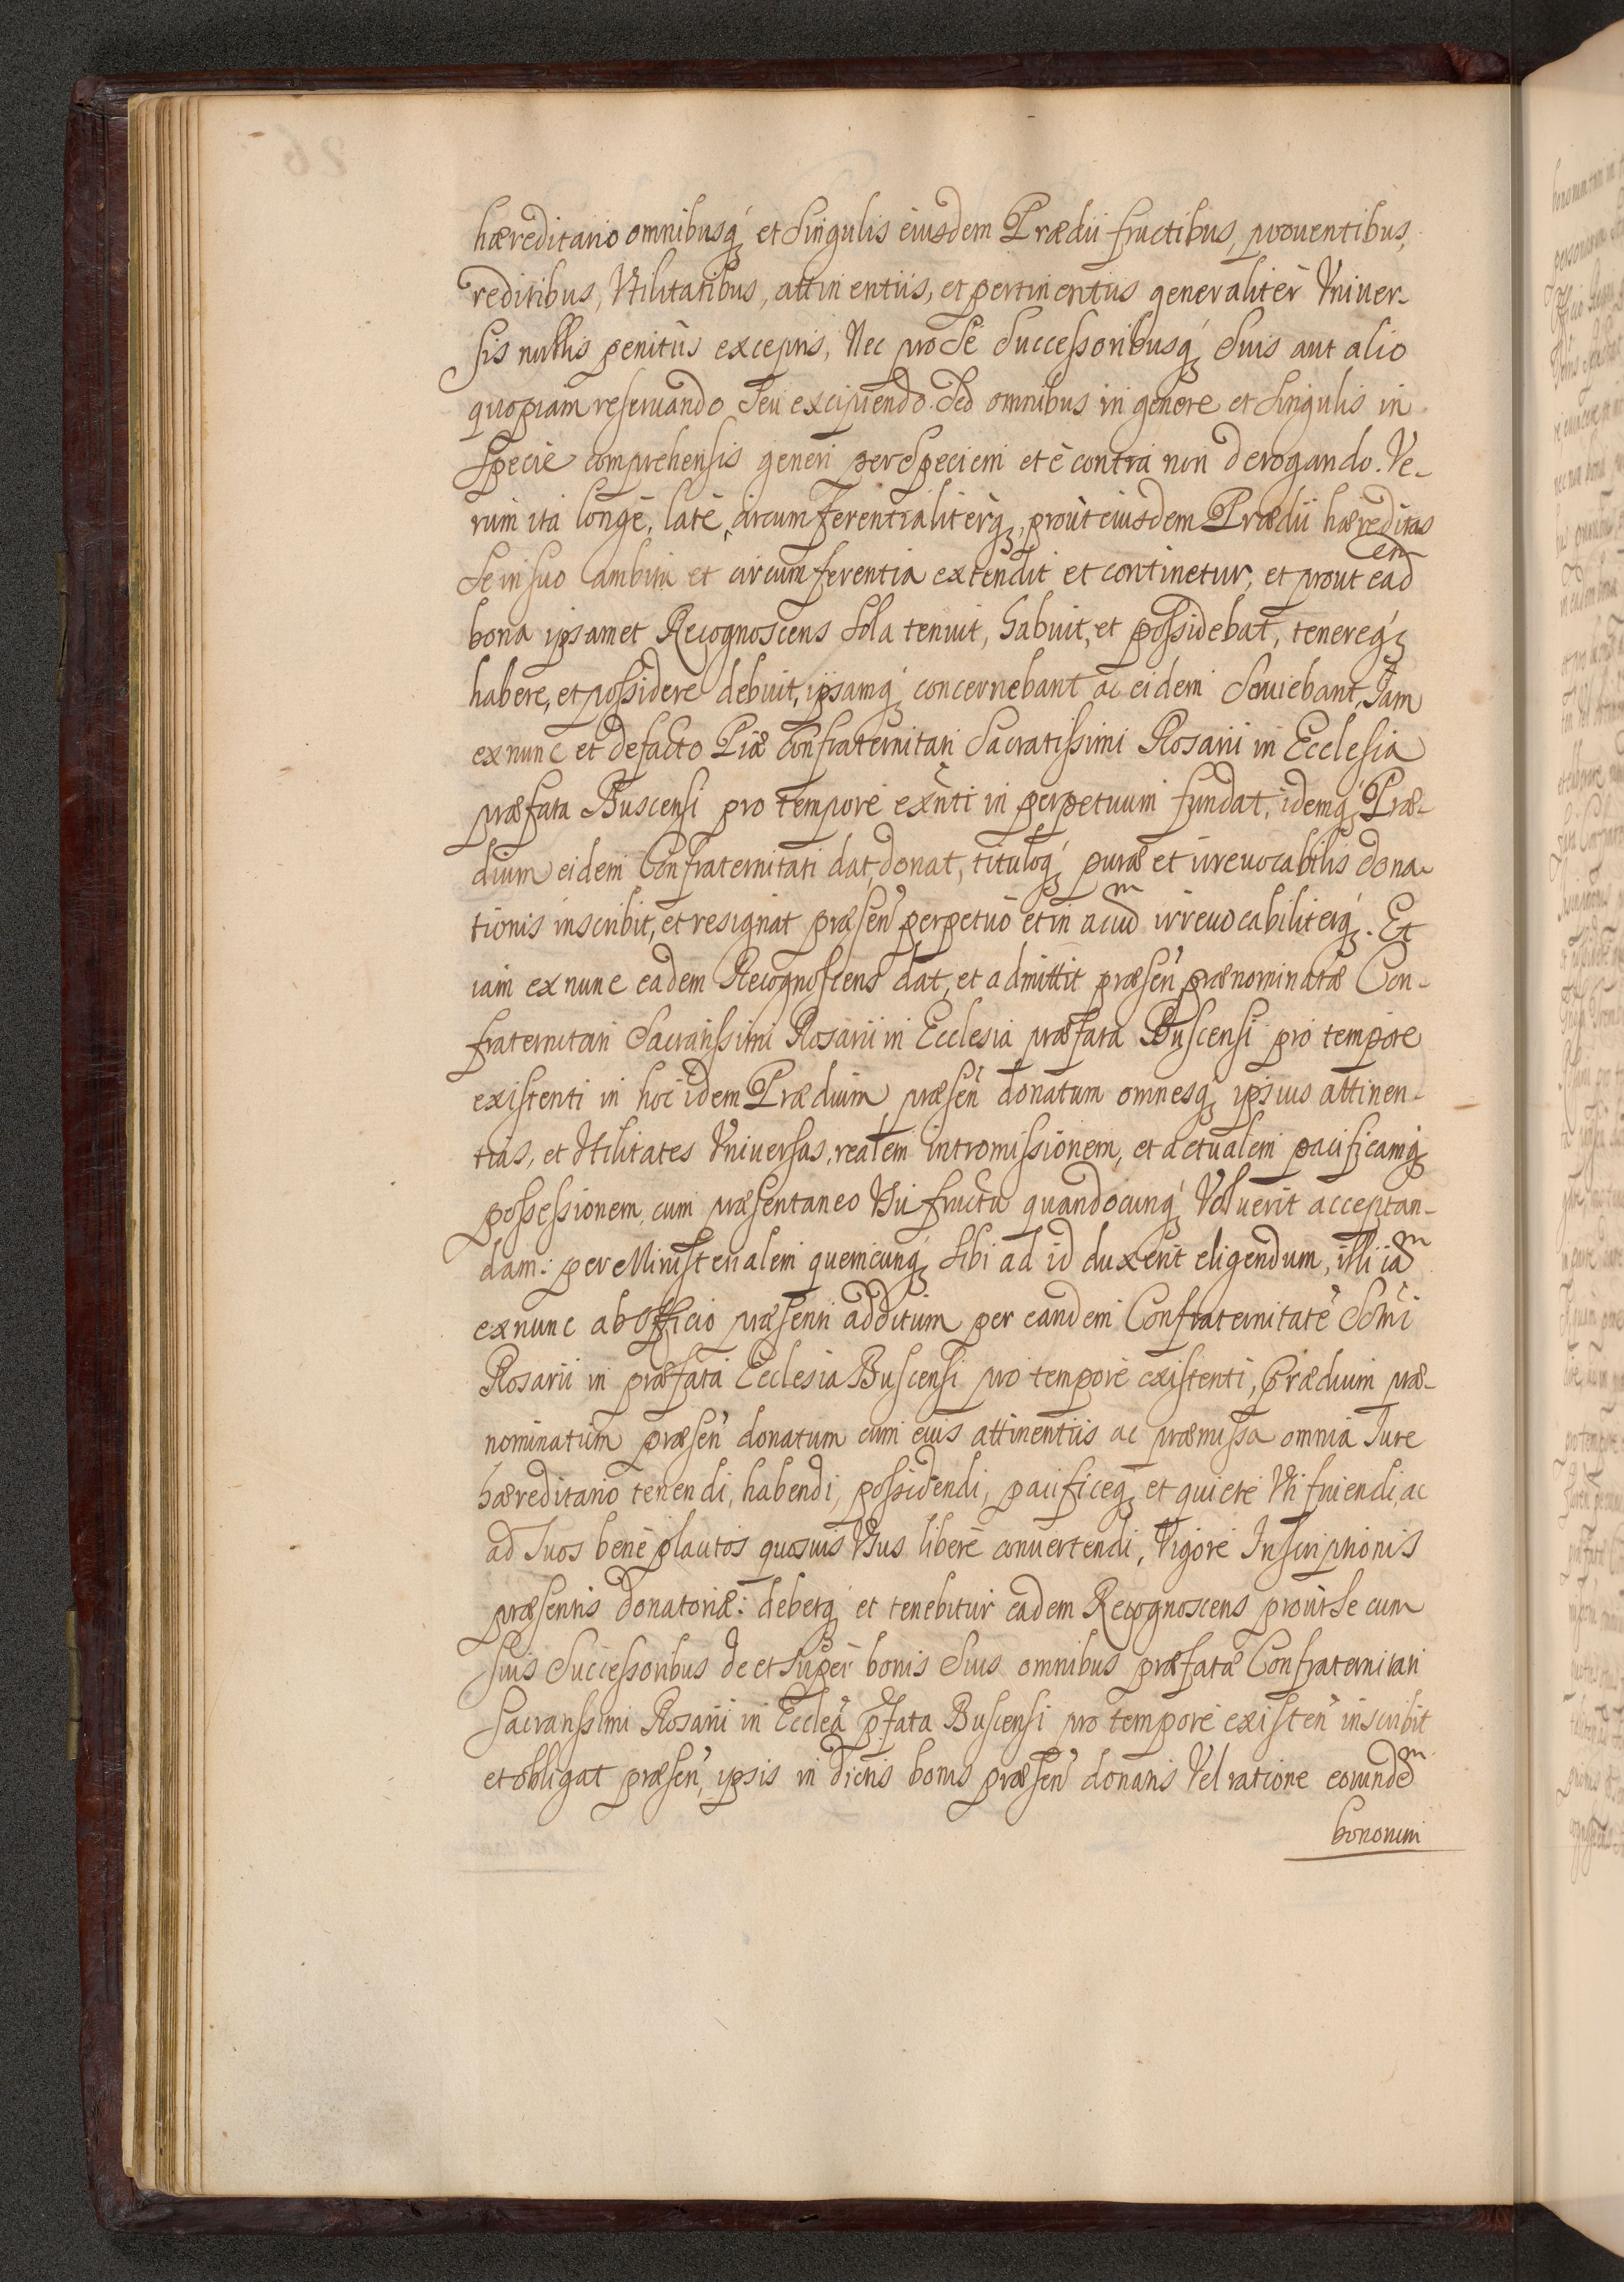 hæreditario omnibusq́ȝ et Singulis eiusdem Prædii fructibus, prouentibus,
reditibus, Vtilitatibus, attinentiis, et pertinentiis generalitèr Vniuer-
sis nullis penitùs exceptis, Nec pro Se Successoribusq́ȝ Suis aut alio
quopiam reseruando Seu excipiendo. Sed omnibus in genere et Singulis in
Specie comprehensis generi per Speciem et è contra non derogando. Ve-
rum ita longè, latè, circumferentialitèrqȝ, proùt eiusdem Prædii hæreditas
Se in suo ambitu et circumferentia extendit et continetur, et prout ead em
bona ipsamet Recognoscens Sola tenuit, habuit, et possidebat, tenereq́ȝ
habere, et possidere debuit, ipsamq́ȝ concernebant ac eidem Seruiebant, Jam
ex nunc et de facto Piæ Confraternitati Sacratissimi Rosarii in Ecclesia
præfata Buscensi pro tempore exñti in perpetuum fundat, idemq́ȝ Præ-
dium eidem Confraternitati dat, donat, tituloq́ȝ puræ et irreuocabilis dona-
tionis inscribit, et resignat præseñ perpetuò et in æuu m irreuocabiliterq́ȝ. Et
iam ex nunc eadem Recognoscens dat, et admittit præseñ prænominatæ Con-
fraternitati Sacratissimi Rosarii in Ecclesia præfata Buscensi pro tempore
existenti in hoc idem Prædium præseñ donatum omnesqȝ ipsius attinen-
tias, et Vtilitates Vniuersas, realem intromissionem, et actualem pacificamqȝ
possessionem, cum præsentaneo Vsu fructu quandocunq́ȝ Voluerit acceptan-
dam: per Ministerialem quemcunq́ȝ Sibi ad id duxerit eligendum, illi ia m
ex nunc ab Officio præsenti additum per eandem Confraternitatẽ Sõmi
Rosarii in præfata Ecclesia Buscensi pro tempore existenti, Prædium præ-
nominatum præseñ donatum cum eius attinentiis ac præmissa omnia Jure
hæreditario tenendi, habendi, possidendi, pacificeqȝ et quietè Vti fruendi, ac
ad Suos benè placitos quosuis Vsus liberè conuertendi, Vigore Inscriptionis
præsentis donatoriæ: debetq́ȝ et tenebitur eadem Recognoscens proùt Se cum
Suis Successoribus de et Super bonis Suis omnibus præfatæ Confraternitati
Sacratissimi Rosarii in Ecclẽa pfata Buscensi pro tempore existeñ inscribit
et obligat præseñ, ipsis in dictis bonis præseñ donatis Vel ratione eorunde m
bonorum